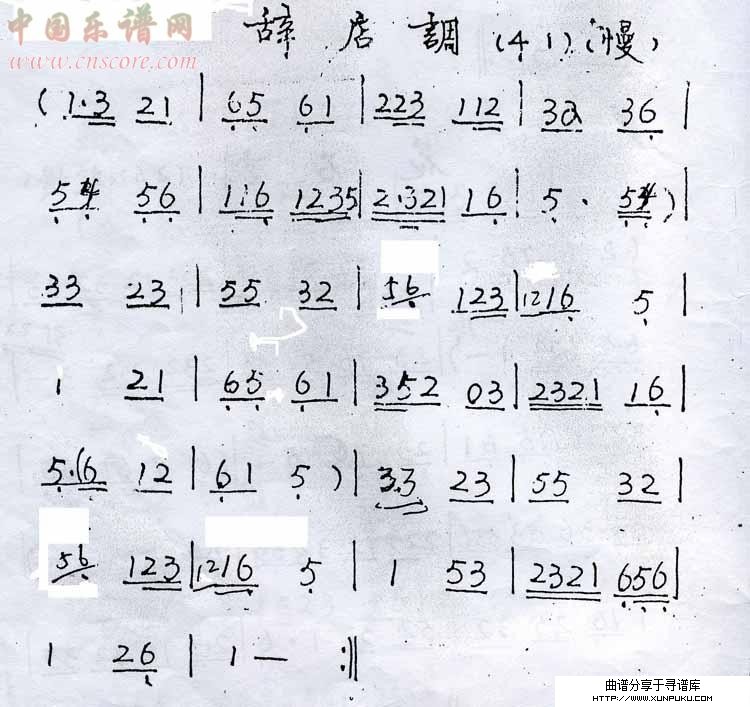 中国乐谱网
www.cnscore.com
辞店調 (41) (慢)
(1·3 21 | 65 61 | 223 112 | 32 36 |
54 56 | 1·6 1235 | 2·321 16 | 5· 54) |
33 23 | 55 32 | 56 123 | 1216 5 |
1 21 | 65 61 | 352 03 | 2321 16 |
5·(6 12 | 61 5) | 33 23 | 55 32 |
56 123 | 1216 5 | 1 53 | 2321 656 |
1 26 | 1 — :||
曲谱分享于寻谱库
HTTP://WWW.XUNPUKU.COM